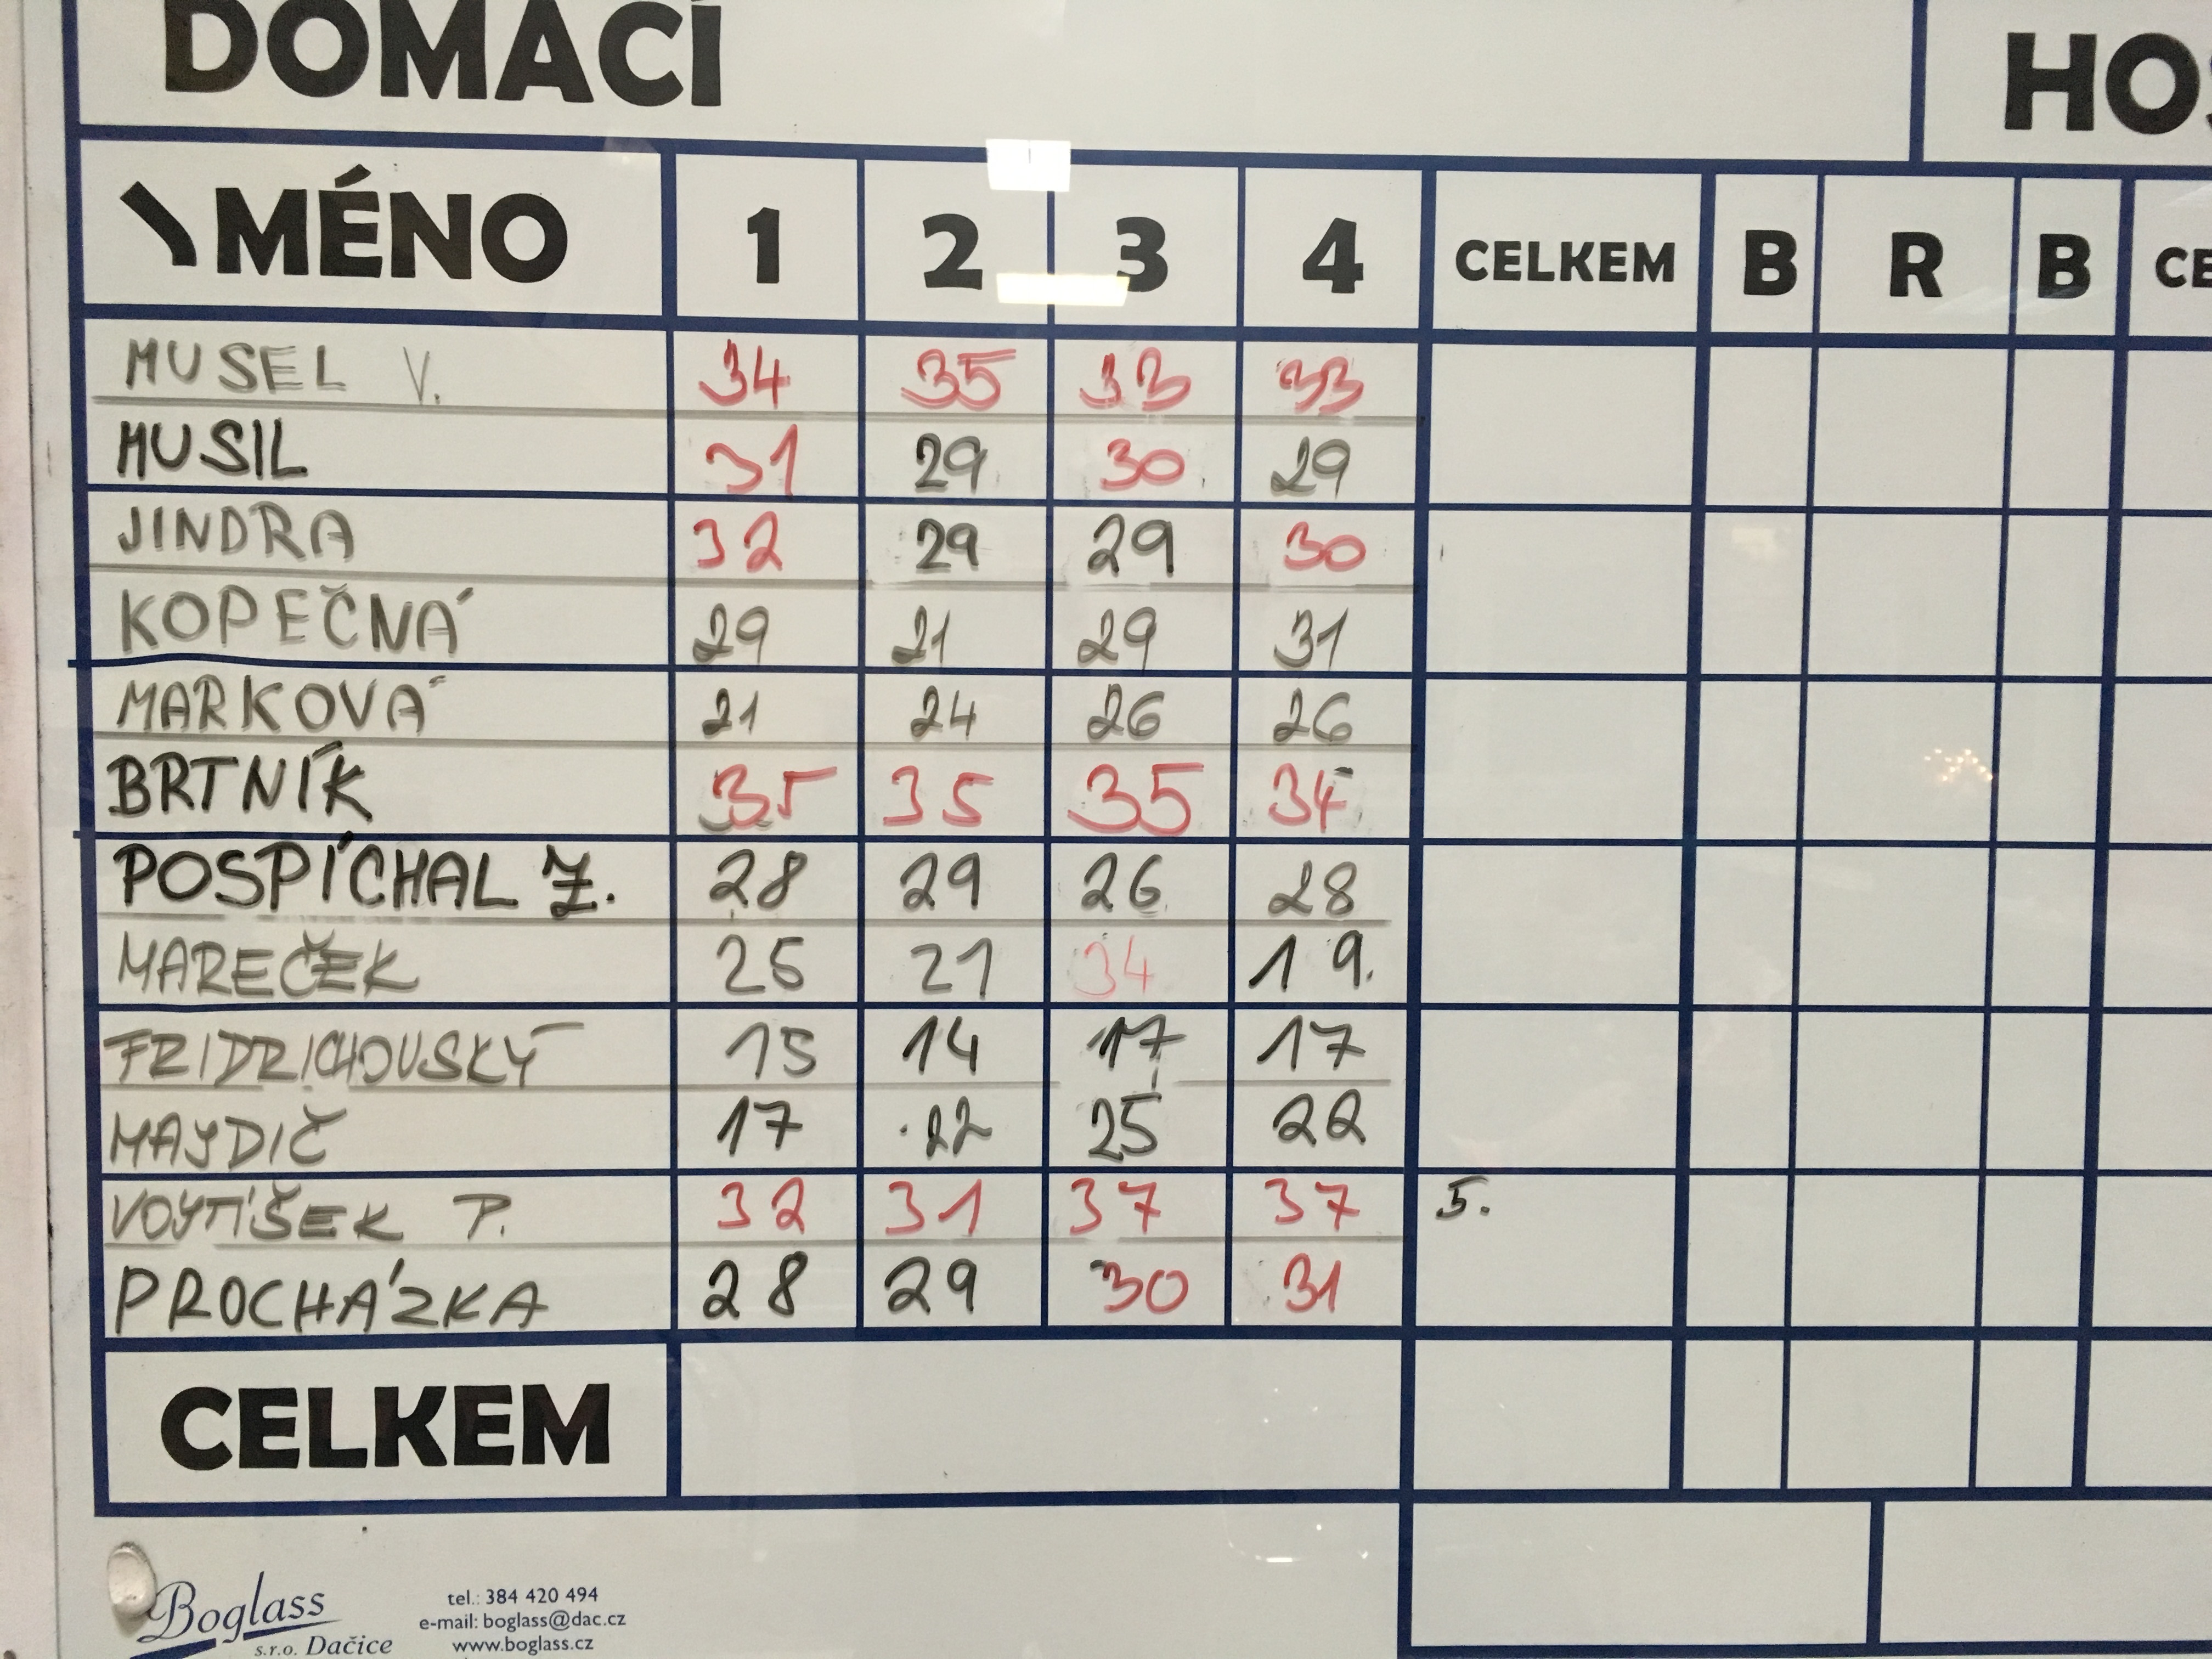 DOMÁCÍ
HO
MÉNO 1 2 3 4 CELKEM B R B CE
MUSEL V. 34 35 33 33
MUSIL 31 29 30 29
JINDRA 32 29 29 30
KOPEČNÁ 29 21 29 31
MARKOVÁ 21 24 26 26
BRTNÍK 35 35 35 34
POSPÍCHAL Z. 28 29 26 28
MAREČEK 25 21 34 19.
FRIDRICHOVSKÝ 15 14 17 17
MAJDIČ 17 22 25 22
VOJTÍŠEK P. 32 31 37 37 5.
PROCHÁZKA 28 29 30 31
CELKEM
Boglass
s.r.o. Dačice
tel.: 384 420 494
e-mail: boglass@dac.cz
www.boglass.cz